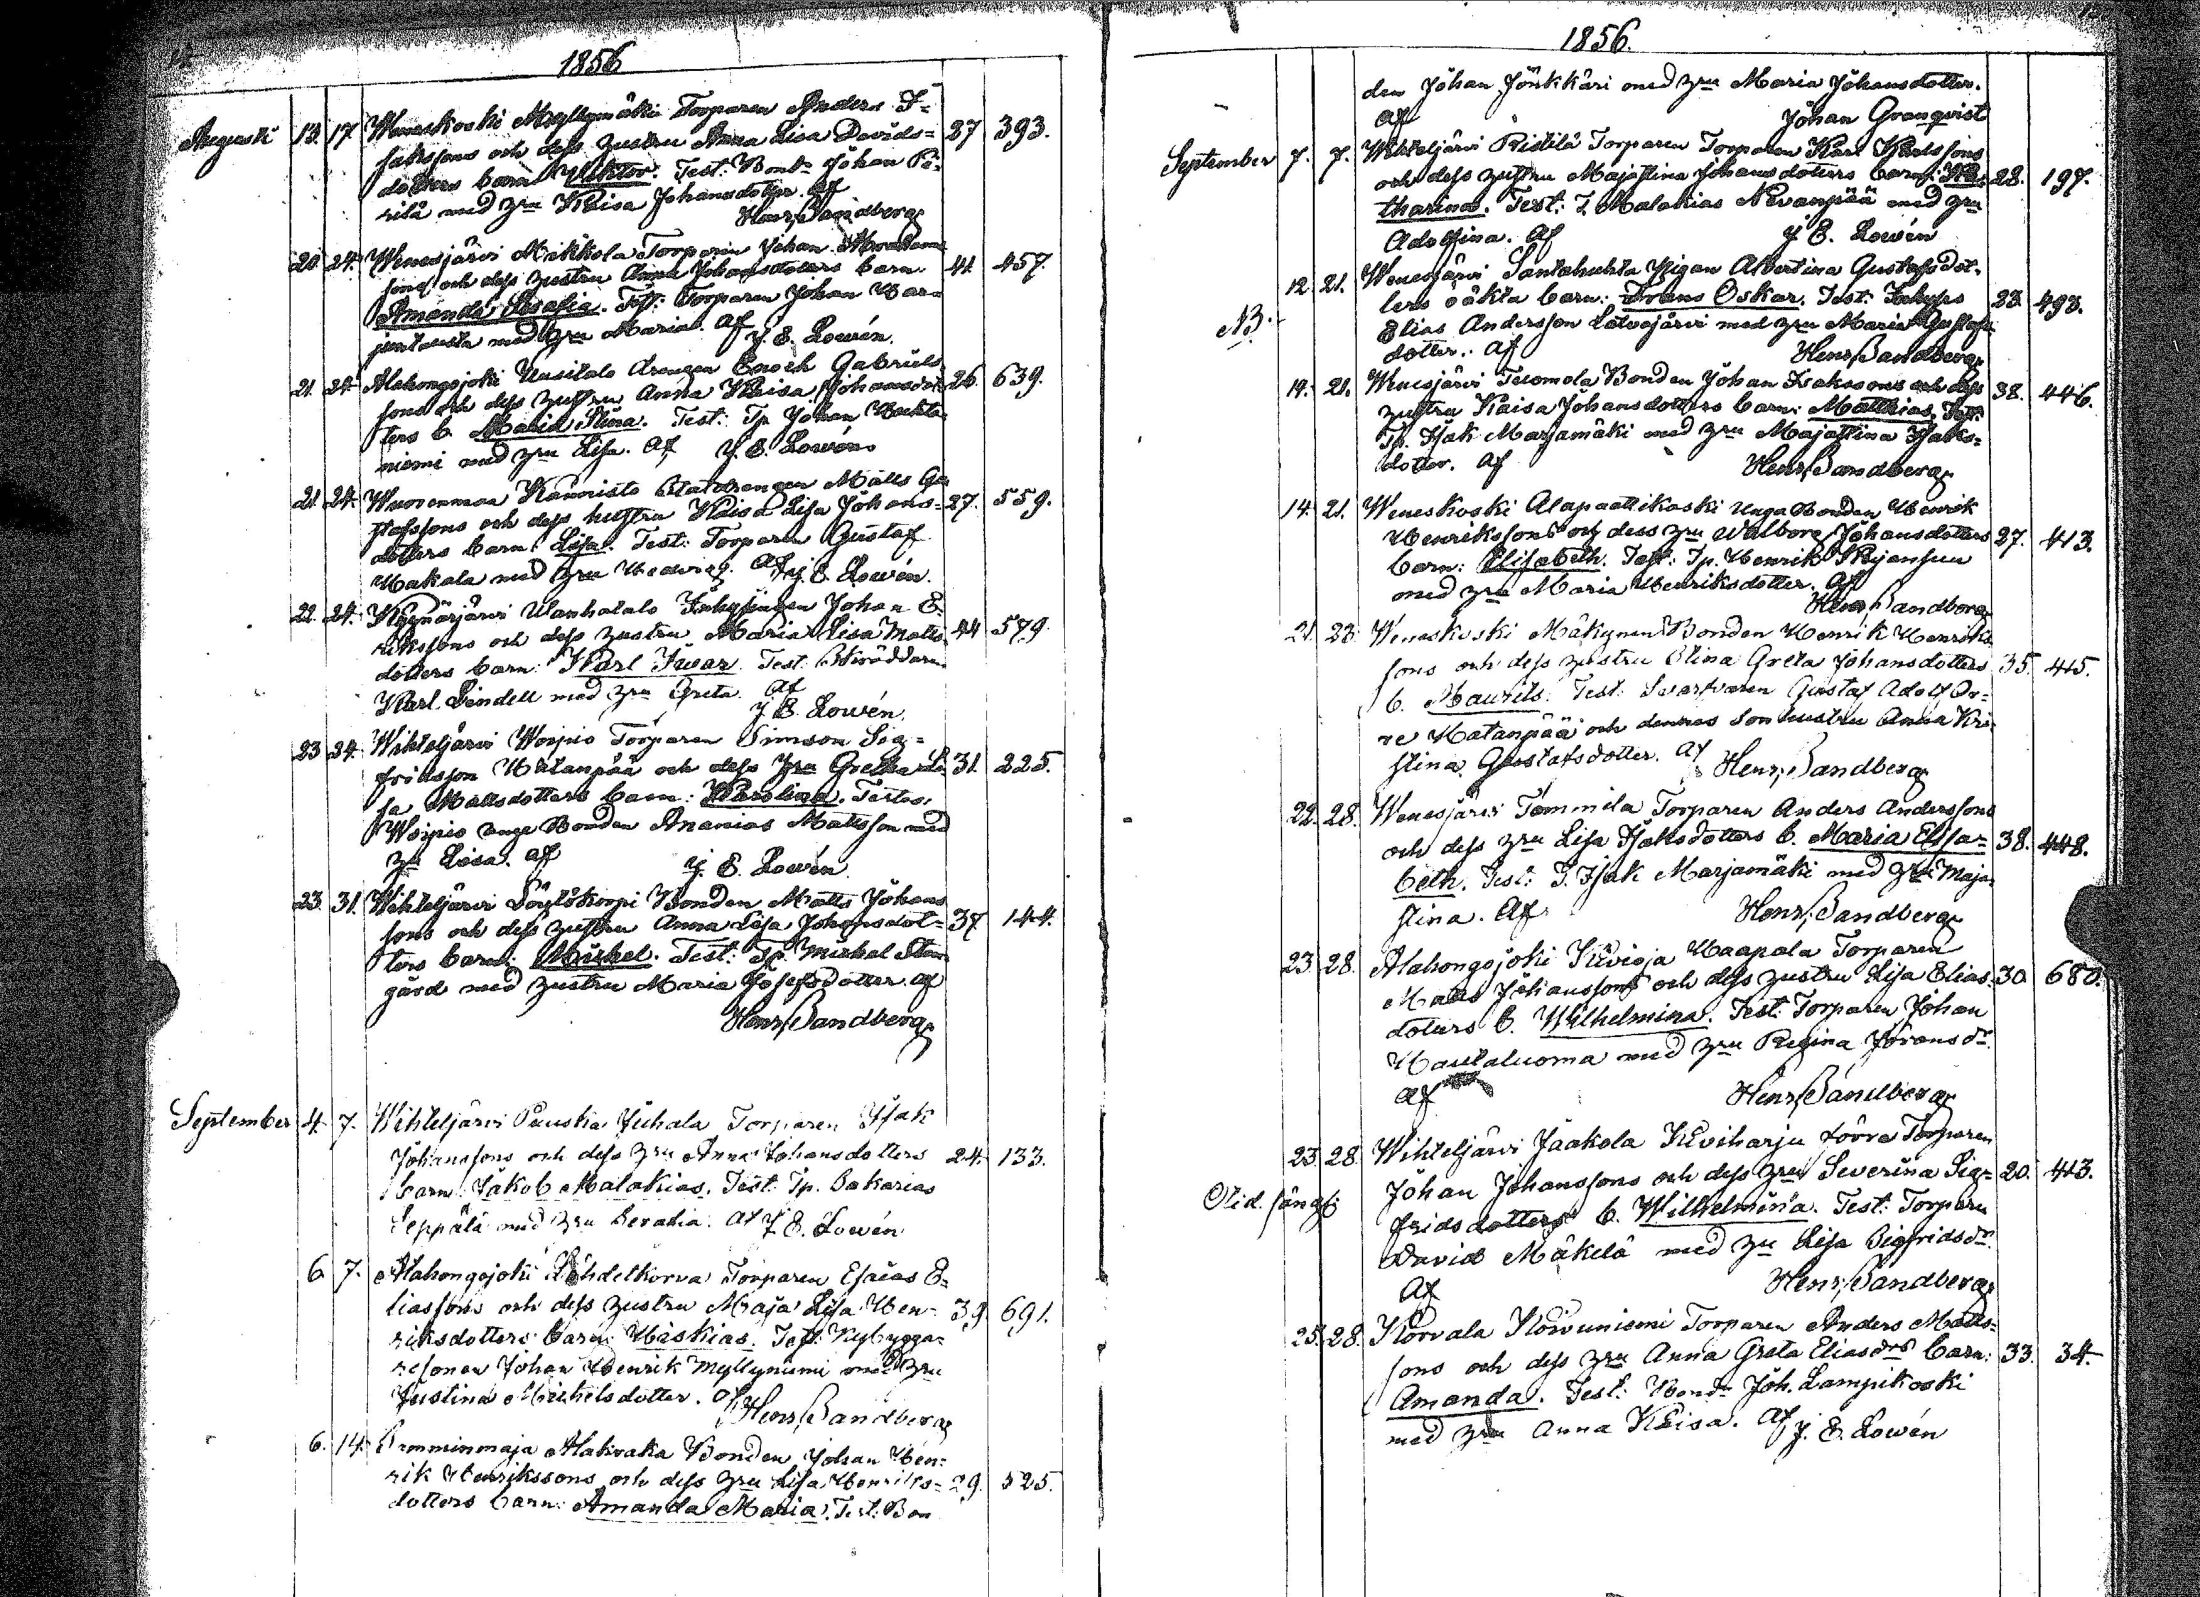 1856
Augusti 13. 17. Weneskoski Myllymäki Torparen Anders I-
sakssons och dess hustru Anna Lisa Davids- 27 393.
dotters barn Viktor. Test: Bond. Johan Pe-
rilä med hru Kaisa Johansdotter. Af
Henr. Sandberg
20. 24. Wenesjärvi Mikkola Torparen Johan Abrahams
sons och dess hustru Anna Johansdotters barn 41. 457.
Amanda Josefia. Test: Torparen Johan Har-
juntausta med hru Maria. Af J. E. Lowén.
21. 24. Alahongojoki Uusitalo Drengen Enoch Gabriels
sons och dess hustru Anna Kaisa Johansdot- 26. 639.
ters b. Maria Stina. Test: Tp. Johan
niemi med hru Lisa. Af J. E. Lowén
21. 24. Wuorenmaa Kannisto Matts Gu
stafssons och dess hustru Kaisa Lisa Johans- 27. 559.
dotters barn: Lisa. Test: Torparen Gustaf
Makala med hru Hedvig. Af J. E. Lowén.
22. 24. Kynärjärvi Wanhatalo Inhysingen Johan E-
rikssons och dess hustru Maria Lisa Matts 44 579.
dotters barn: Karl Iwar. Test: Skräddaren
Karl Lindell med hru Greta. Af
J. E. Lowén.
23 24. Wihteljärvi Woipio Torparen Simson Sig-
fridsson Hatanpää och dess hru Gretha Li- 31. 225.
sa Mattsdotters barn: Karolina. Testes.
Woipio unge Bonden Ananias Mattsson med
hru Lisa. Af J. E. Lowén.
23. 31. Wihteljärvi Löytökorpi Bonden Matts Johans
sons och dess hustru Anna Lisa Johansdot- 37. 144.
ters barn: Mickel. Test: Tp. Mickel Sten
gård med hustru Maria Josefsdotter. Af
Henr. Sandberg
September 4. 7. Wihteljärvi Puuska Juhala Torparen Isak
Johanssons och dess hru Anna Johansdotters 24. 133.
barn: Jakob Malakias. Test: Tp. Sakarias
Seppälä med hru Serafia. Af J. E. Lowén
6. 7. Alahongojoki Lähdekorva Torparen Esaias E-
liassons och dess hustru Maja Lisa Hen- 39. 691.
riksdotters barn: Hiskias. Test: Nybygga-
resonen Johan Henrik Myllyniemi med hru
Justina Michelsdotter. Af
Henr. Sandberg
6. 14. Pomminmaja Alakraka Bonden Johan Hen-
rik Henrikssons och dess hru Lisa Henriks- 29. 325.
dotters barn: Amanda Maria. Test. Bon
1856.
den Johan Jönkkäri med hru Maria Johansdotter.
Af Johan Granqvist
September 7. 7. Wihteljärvi Ristilä Torparen Torparen Karl Karlssons
och dess hustru Majastina Johansdotters barn: Ka- 28. 197.
tharina. Test: T. Malakias Nevanpää med hru
Adolfina. Af J. E. Lowén
12. 21. Wenesjärvi Santahuhta Pigan Albertina Gustafsdot-
ters oäkta barn: Frans Oskar. Test: Inhyses 23. 493.
NB. Elias Andersson Latvajärvi med hru Maria Gustafs
dotter. Af Henr. Sandberg
14. 21. Wenesjärvi Tuomola Bonden Johan Isakssons och dess
hustru Kaisa Johansdotters barn: Matthias. Test: 38. 446.
Tp. Isak Marjamäki med hru Majastina Isaks-
dotter. Af Henr. Sandberg
14. 21. Weneskoski Alapaattikoski Unga Bonden Henrik
Henrikssons och dess hru Walborg Johansdotters 27. 413.
barn: Elisabeth. Test: Tp. Henrik Kujansuu
med hru Maria Henriksdotter. Af
Henr. Sandberg
21. 23. Weneskoski Mäkynen Bonden Henrik Henriks
sons och dess hustru Stina Greta Johansdotters 35. 415.
b. Maurits. Test: Svarfvaren Gustaf Adolf Or-
re Hatanpää och dennes sonhustru Anna Kri-
stina Gustafsdotter. Af Henr. Sandberg
22. 28. Wenesjärvi Tommila Torparen Anders Anderssons
och dess hru Lisa Isaksdotters b. Maria Elisa- 38. 448.
beth. Test: T. Isak Marjamäki med hru Maja-
stina. Af Henr. Sandberg
23. 28. Alahongojoki Kivioja Haapala Torparen
Matts Johanssons och dess hustru Lisa Elias- 30. 680.
dotters b. Wilhelmina. Test: Torparen Johan
Hautaluoma med hru Regina Jöransdr.
Af Henr. Sandberg
23. 28. Wihteljärvi Jaakola Kiviharju förra Torparen
Johan Johanssons och dess hru Severina Sig- 20. 413.
Oid. säng fridsdotters b. Wilhelmina. Test: Torparen
David Mäkelä med hru Lisa Sigfridsdr.
Af Henr. Sandberg
25. 28. Korvala Korvuniemi Torparen Anders Matts-
sons och dess hru Anna Greta Eliasdrs barn: 33. 34.
Amanda. Test: Bond. Joh. Lampikoski
med hru Anna Kaisa. Af J. E. Lowén